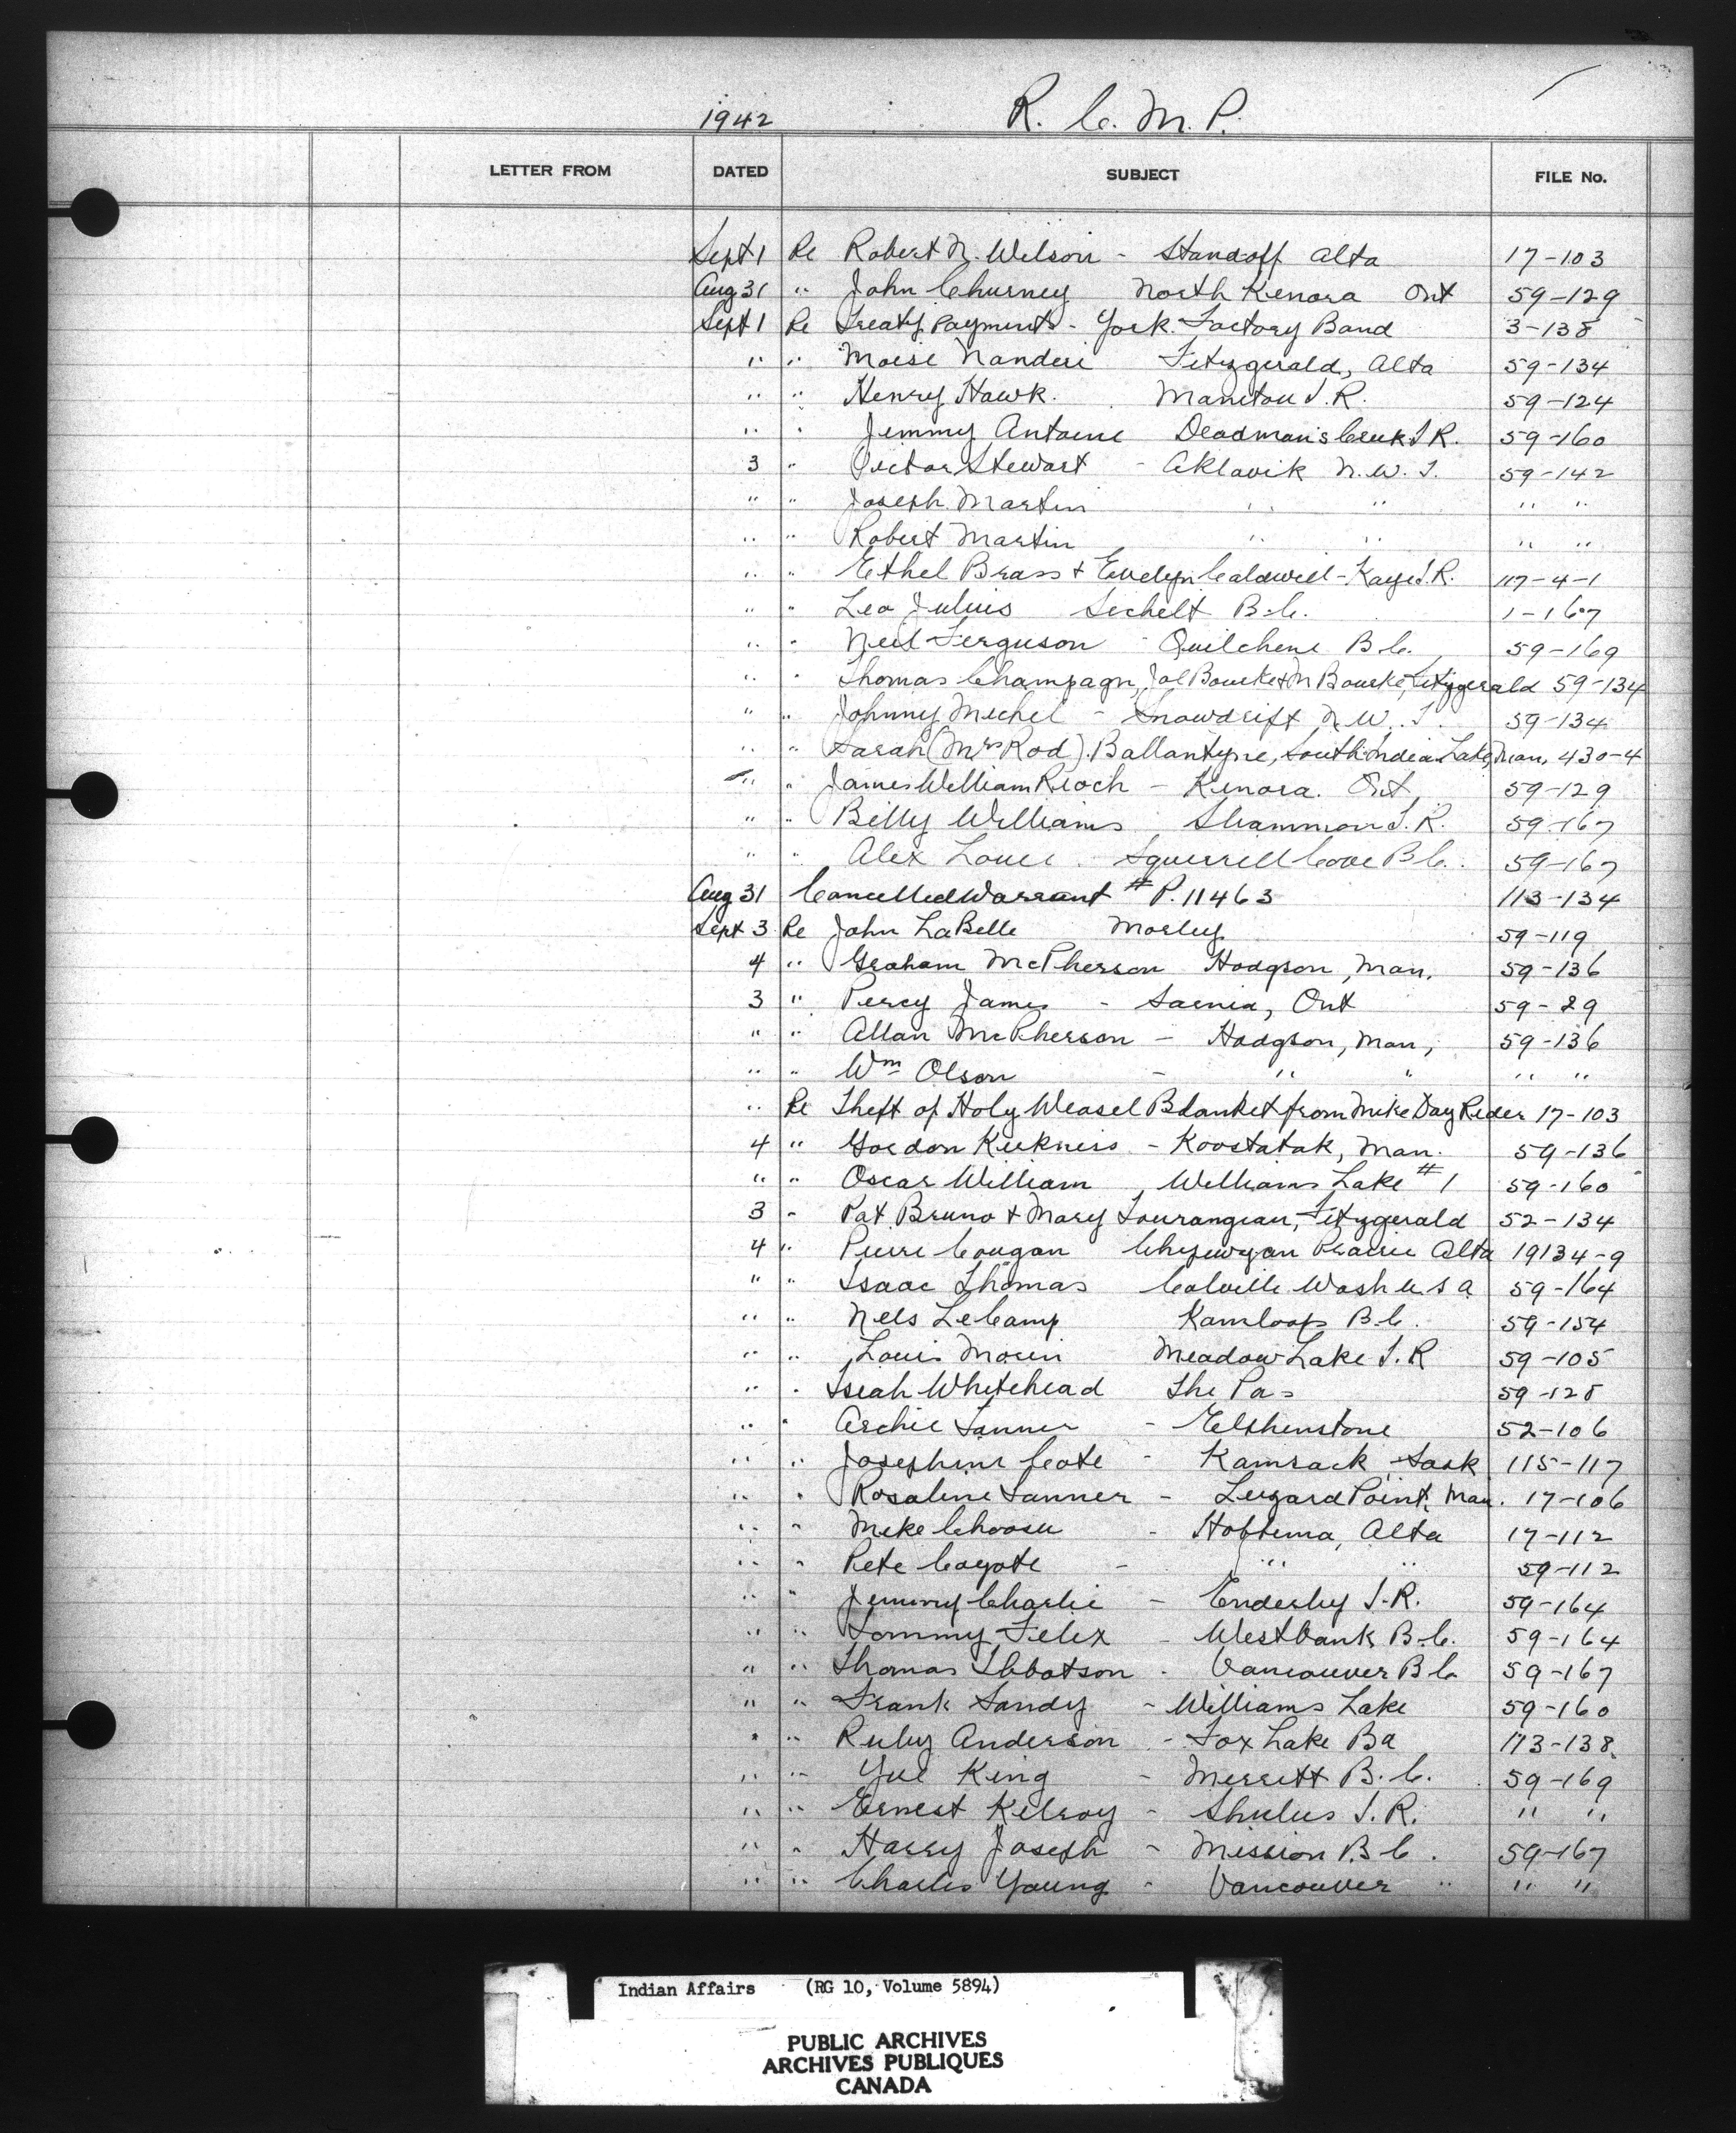 1942 R. C. M. P.
LETTER FROM DATED SUBJECT FILE No.
Sept 1 Re Robert N. Wilson - Standoff Alta 17-103
Aug 31 " John Churney North Kenora Ont 59-129
Sept 1 Re Treaty Payments - York Factory Band 3-138
" " Moise Nanderi Fitzgerald, Alta 59-134
" " Henry Hawk. Manitou I.R. 59-124
" " Jimmy Antoine Deadman's Creek I R. 59-160
3 " Victor Stewart - Aklavik N.W.T. 59-142
" " Joseph Martin " " " "
" " Robert Martin " " " "
" " Ethel Brass + Evelyn Caldwell - Keys I.R. 117-4-1
" " Leo Julius Sechelt B.C. 1-167
" " Neil Ferguson - Quilchena B.C. 59-169
" " Thomas Champagn, Joe Bourke + M Bourke, Fitzgerald 59-134
" " Johnny Michel - Snowdrift N.W.T. 59-134
" " Sarah (Mrs Rod) Ballantyne, South Indian Lake, Man, 430-4
" " James William Rioch - Kenora. Ont, 59-129
" " Billy Williams Sliammon I.R. 59-167
" " Alex Louie Squirrell Cove B C. 59-167
Aug 31 Cancelled Warrant # P. 11463 113-134
Sept 3 Re John LaBelle Morley 59-119
4 " Graham McPherson Hodgson, Man. 59-136
3 " Percy James - Sarnia, Ont 59-29
" " Allan McPherson - Hodgson, Man, 59-136
" " Wm Olson - " " " "
" Re Theft of Holy Weasel Blanket from Mike Day Rider 17-103
4 " Gordon Kirkness - Koostatak, Man. 59-136
" " Oscar William Williams Lake #1 59-160
3 " Pat Bruno + Mary Tourangeau, Fitzgerald 52-134
4 " Pierre Cougan Chipewyan Prairie Alta 19134-9
" " Isaac Thomas Colville Wash U S A 59-164
" " Nels LeCamp Kamloops B.C. 59-154
" " Louis Morin Meadow Lake I.R 59-105
" " Iseah Whitehead The Pas 59-128
" " Archie Tanner - Elphinstone 52-106
" " Josephine Cote - Kamsack, Sask 115-117
" " Rosaline Tanner - Lizard Point, Man. 17-106
" " Mike - Hobbema, Alta 17-112
" " Pete Coyote - " " 59-112
" " Jimmy Charlie - Enderby I.R. 59-164
" " Tommy Felix - Westbank B.C. 59-164
" " Thomas Ibbotson - Vancouver B C 59-167
" " Frank Sandy - Williams Lake 59-160
" " Ruby Anderson - Fox Lake Ba 113-138
" " King - Merritt B.C. 59-169
" " Ernest Kilroy - Shulus I.R. " "
" " Harry Joseph - Mission B C. 59-167
" " Charlis Young - Vancouver " " "
Indian Affairs (RG 10, Volume 5894)
PUBLIC ARCHIVES
ARCHIVES PUBLIQUES
CANADA